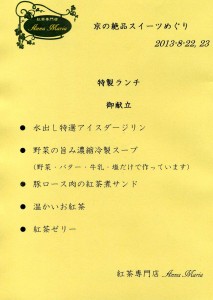 紅茶専門店
Anna Maria
京の絶品スイーツめぐり
2013・8・22, 23
特製ランチ
御献立
● 水出し特選アイスダージリン
● 野菜の旨み濃縮冷製スープ
(野菜・バター・牛乳・塩だけで作っています)
● 豚ロース肉の紅茶煮サンド
● 温かいお紅茶
● 紅茶ゼリー
紅茶専門店 Anna Maria